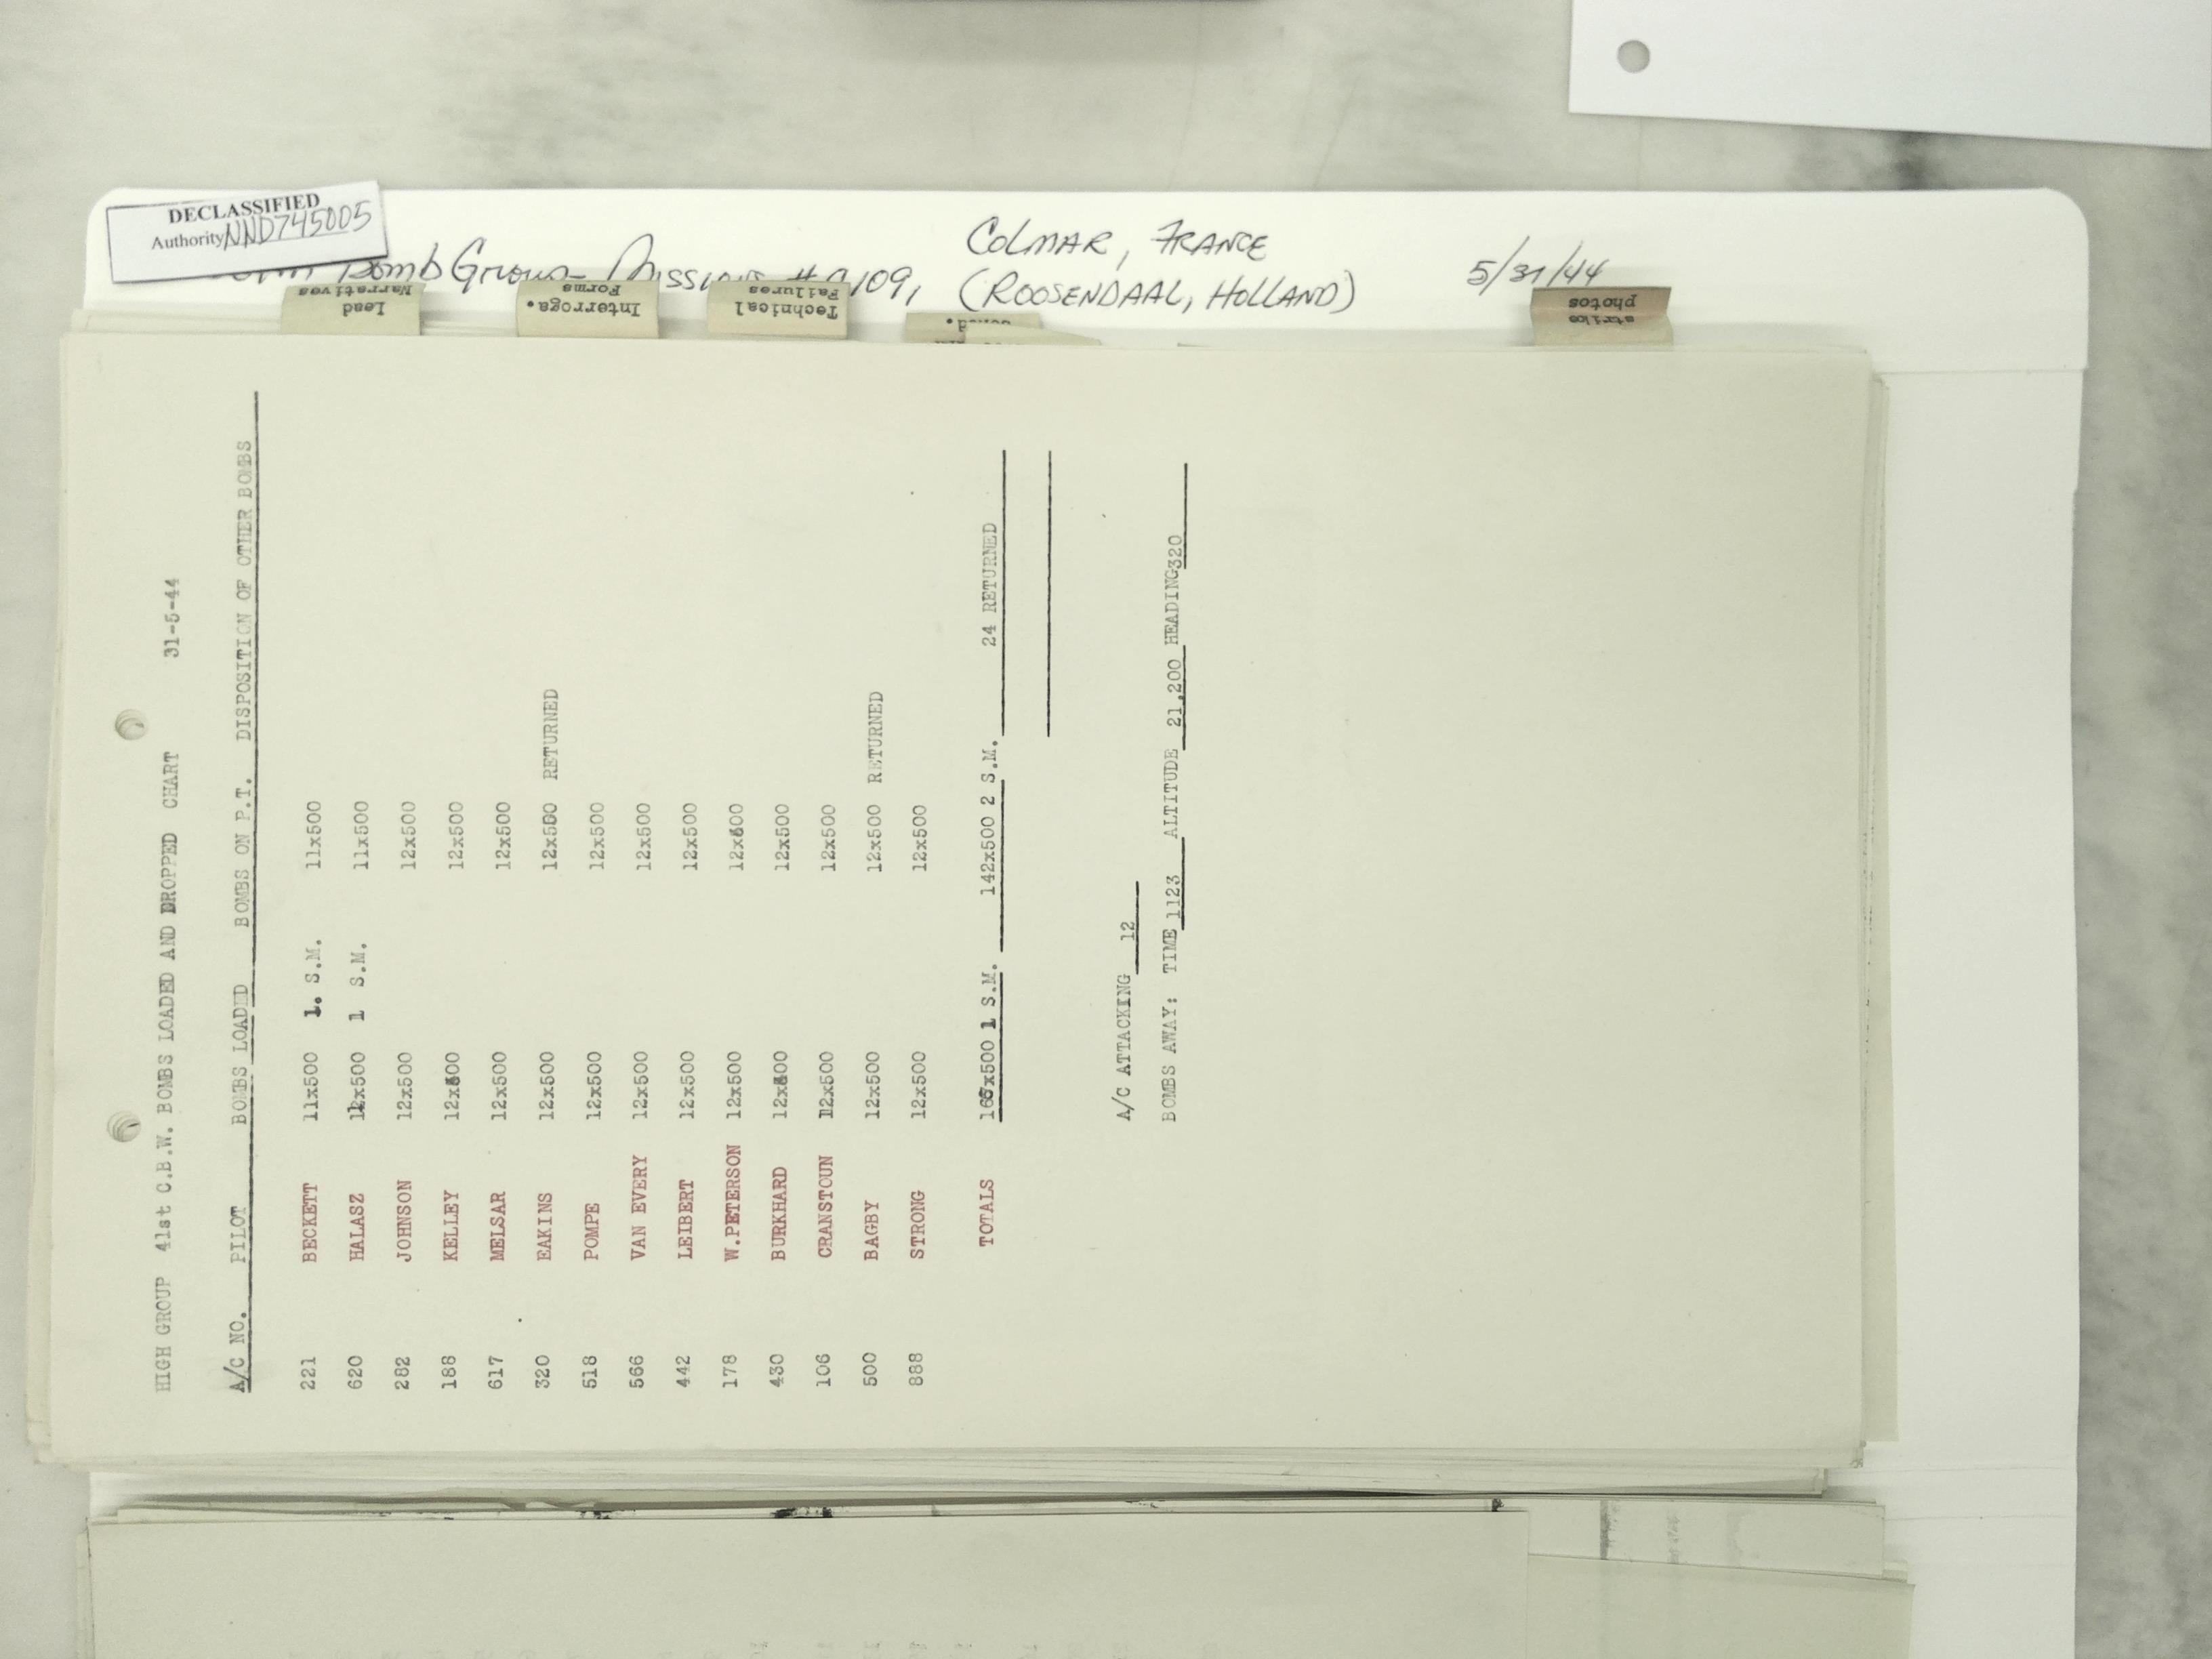 DECLASSIFIED
Authority NND745005
Bomb Group Mission #109, COLMAR, FRANCE
(ROOSENDAAL, HOLLAND) 5/31/44
Lead Narratives
Interroga. Forms
Technical Failures
strike photos
HIGH GROUP 41st C.B.W. BOMBS LOADED AND DROPPED CHART 31-5-44
A/C NO. PILOT BOMBS LOADED BOMBS ON P.T. DISPOSITION OF OTHER BOMBS
221 BECKETT 11x500 1. S.M. 11x500
620 HALASZ 11x500 1 S.M. 11x500
282 JOHNSON 12x500 12x500
188 KELLEY 12x500 12x500
617 MELSAR 12x500 12x500
320 EAKINS 12x500 12x500 RETURNED
518 POMPE 12x500 12x500
566 VAN EVERY 12x500 12x500
442 LEIBERT 12x500 12x500
178 W.PETERSON 12x500 12x500
430 BURKHARD 12x500 12x500
106 CRANSTOUN 12x500 12x500
500 BAGBY 12x500 12x500 RETURNED
888 STRONG 12x500 12x500
TOTALS 1 S.M. 142x500 2 S.M. 24 RETURNED
A/C ATTACKING 12
BOMBS AWAY: TIME 1123 ALTITUDE 21,200 HEADING 320